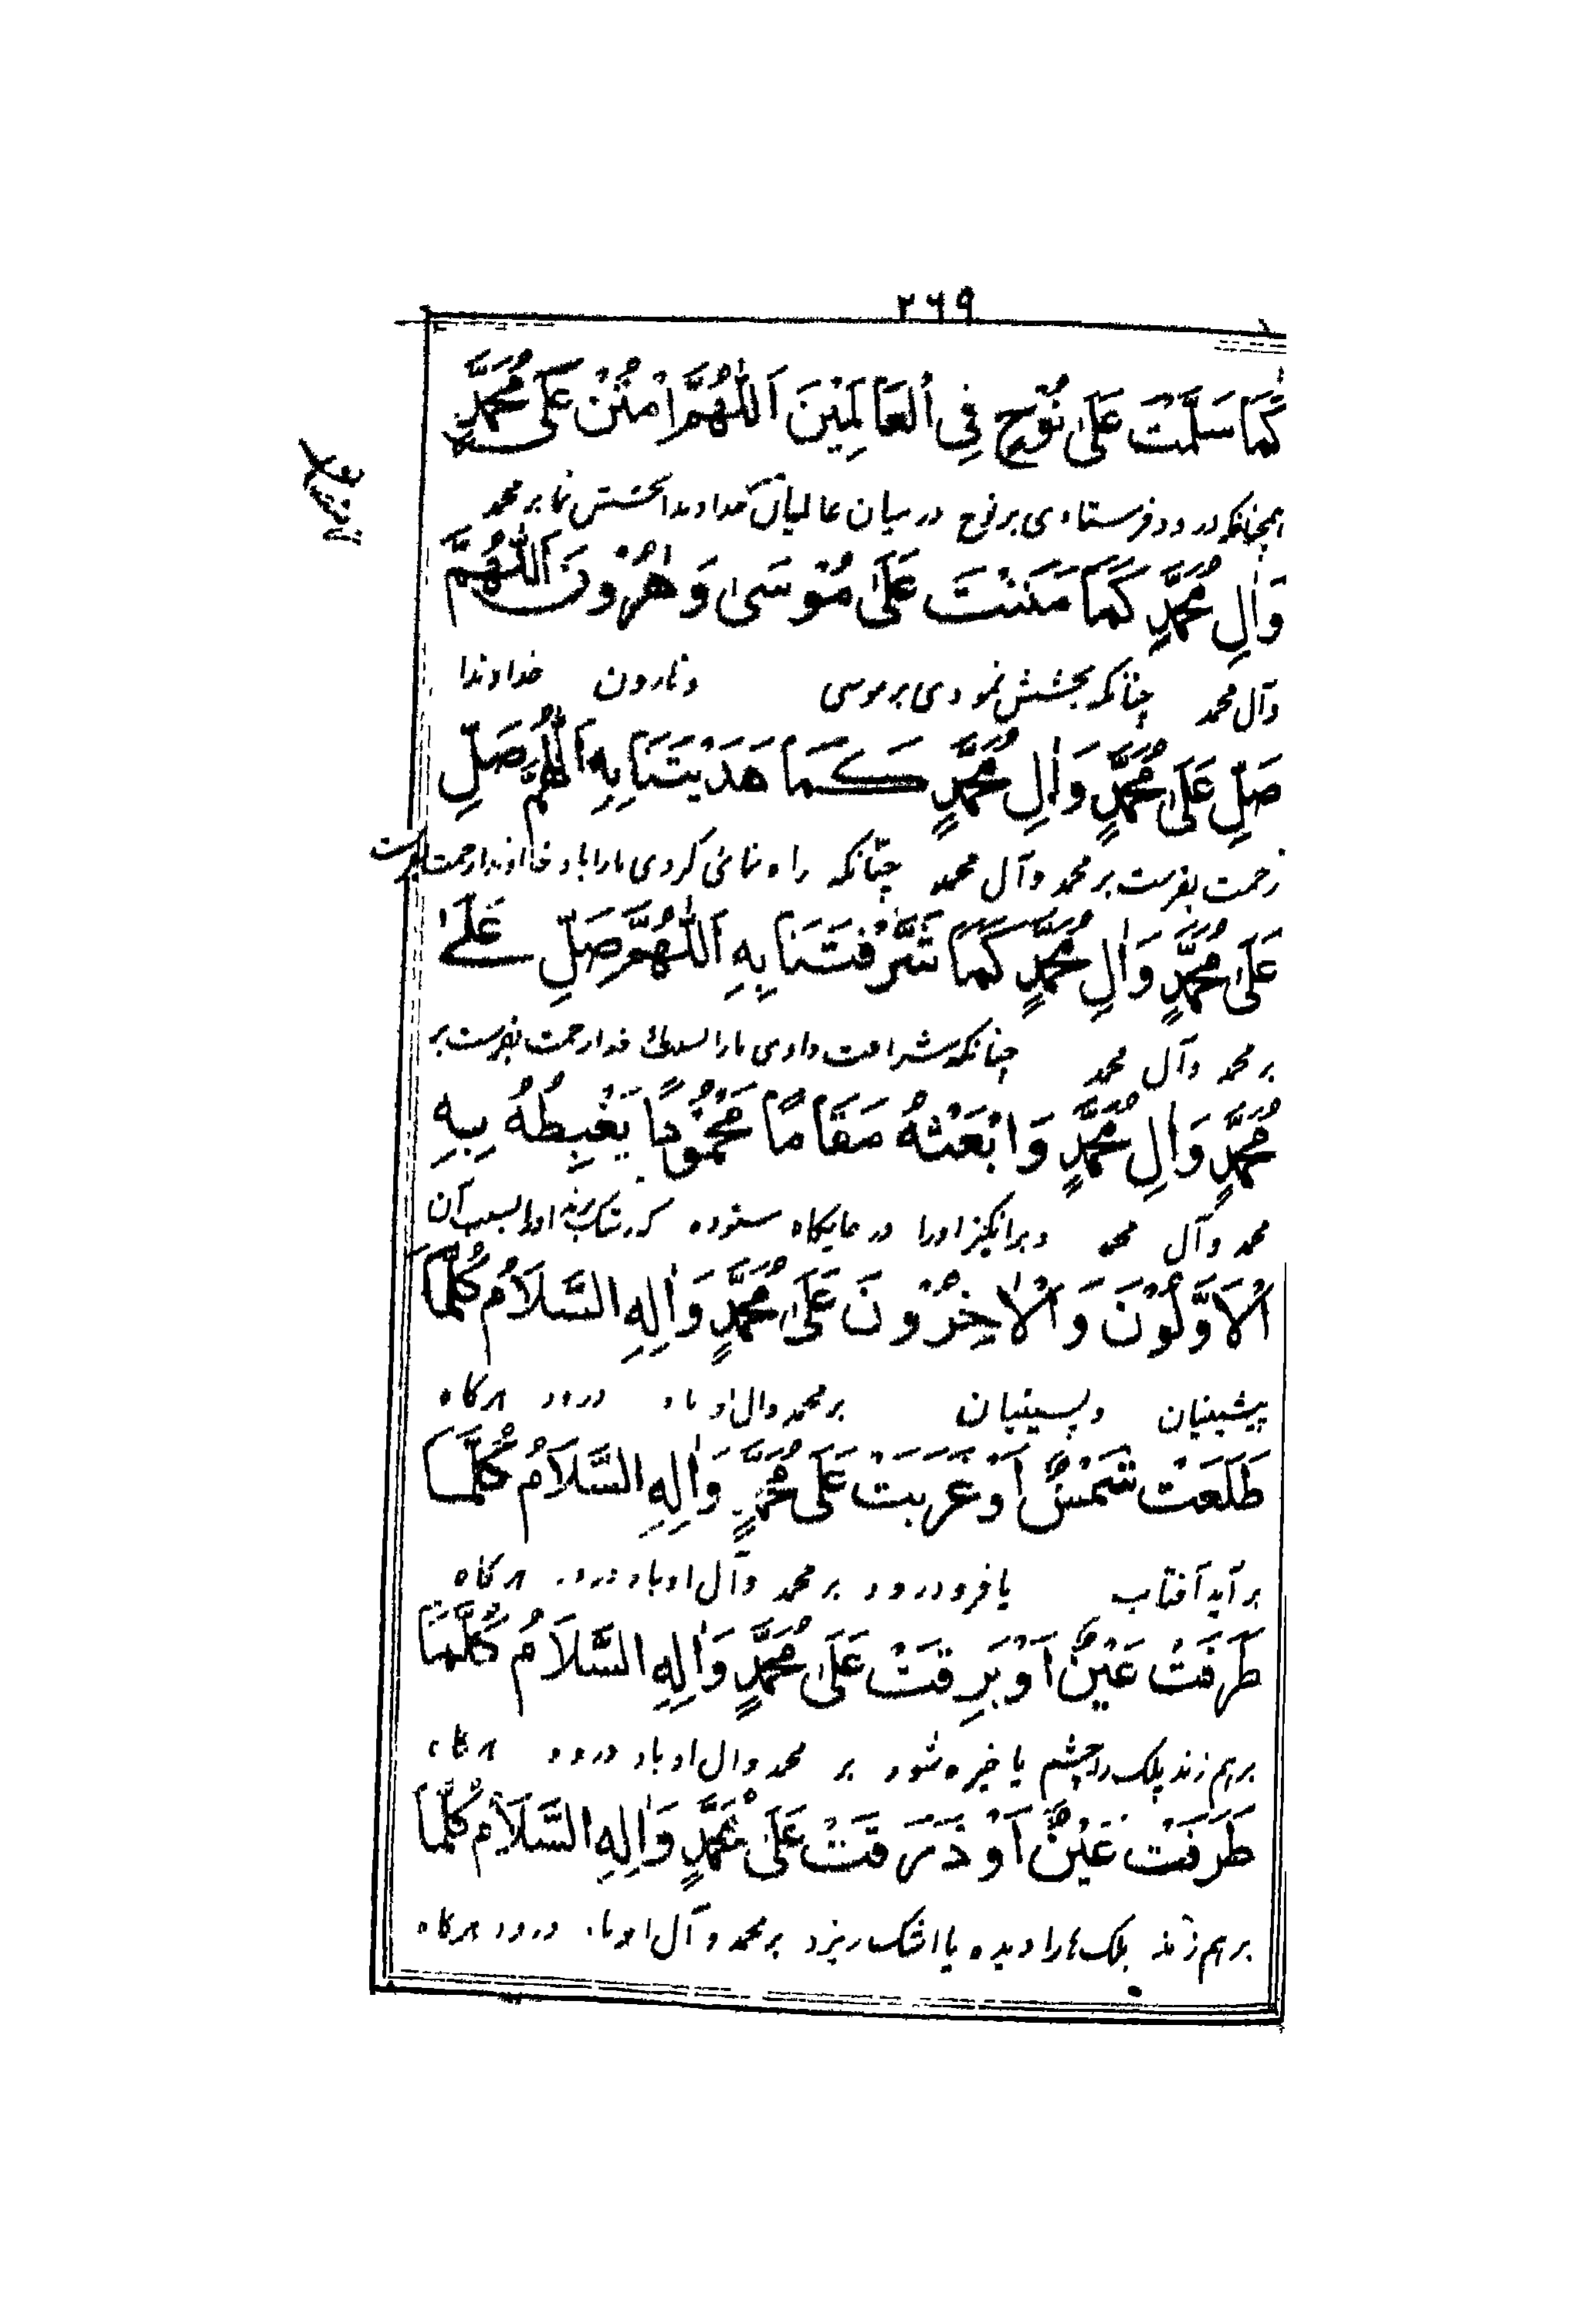 ۲۶۹
كَمَا سَلَّمْتَ عَلىٰ نُوْحٍ فِى الْعَالَمِيْنَ اَللّٰهُمَّ امْنُنْ عَلىٰ مُحَمَّدٍ
همچنانکه درود فرستادی بر نوح در میان عالمیان خداوندا بخشش نما بر محمد
وَاٰلِ مُحَمَّدٍ كَمَا مَنَنْتَ عَلىٰ مُوْسىٰ وَهٰرُوْنَ اَللّٰهُمَّ
وآل محمد چنانکه بخشش نمودی بر موسی وهارون خداوندا
صَلِّ عَلىٰ مُحَمَّدٍ وَاٰلِ مُحَمَّدٍ كَمَا هَدَيْتَنَا بِهِ اَللّٰهُمَّ صَلِّ
رحمت بفرست بر محمد وآل محمد چنانکه راه نمائی کردی ما را باو خداوندا رحمت بفرست
عَلىٰ مُحَمَّدٍ وَاٰلِ مُحَمَّدٍ كَمَا شَرَّفْتَنَا بِهِ اَللّٰهُمَّ صَلِّ عَلىٰ
بر محمد وآل محمد چنانکه شرافت دادی ما را خدا رحمت بفرست بر
مُحَمَّدٍ وَاٰلِ مُحَمَّدٍ وَابْعَثْهُ مَقَامًا مَحْمُوْدًا يَغْبِطُهُ بِهِ
محمد وآل محمد وبرانگیز او را در جایگاه ستوده که رشک برند او را بسبب آن
الْاَوَّلُوْنَ وَالْاٰخِرُوْنَ عَلىٰ مُحَمَّدٍ وَاٰلِهِ السَّلَامُ كُلَّمَا
پیشینیان وپسینیان بر محمد وآل او باد درود هرگاه
طَلَعَتْ شَمْسٌ اَوْ غَرَبَتْ عَلىٰ مُحَمَّدٍ وَاٰلِهِ السَّلَامُ كُلَّمَا
برآید آفتاب یا فرو رود بر محمد وآل او باد درود هرگاه
طَرَفَتْ عَيْنٌ اَوْ بَرِقَتْ عَلىٰ مُحَمَّدٍ وَاٰلِهِ السَّلَامُ كُلَّمَا
برهم زند پلک را چشم یا خیره شود بر محمد وآل او باد درود هرگاه
طَرَفَتْ عَيْنٌ اَوْ ذَرَفَتْ عَلىٰ مُحَمَّدٍ وَاٰلِهِ السَّلَامُ كُلَّمَا
برهم زند پلک را دیده یا اشک ریزد بر محمد وآل او باد درود هرگاه